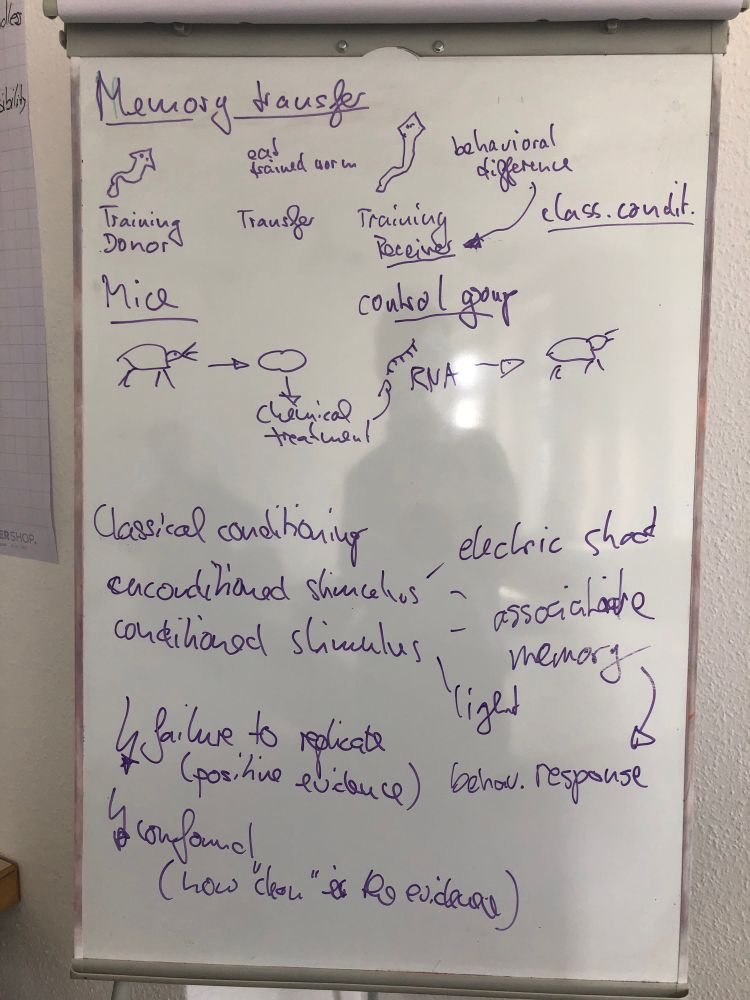 dles
ibility
ERSHOP.
Memory transfer
eat
trained worm
behavioral
difference
Training
Donor
Transfer
Training
Receiver
class. condit.
Mice
control group
RNA
chemical
treatment
Classical conditioning
electric shock
unconditioned stimulus
conditioned stimulus
associative
memory
light
failure to replicate
(positive evidence)
behav. response
confound
(how "clean" is the evidence)